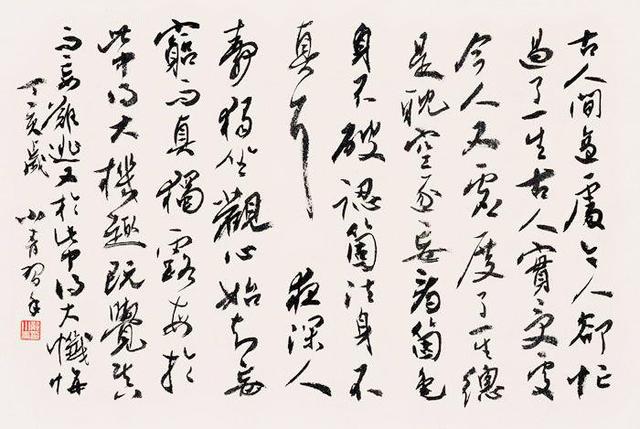 古人間適處今人卻忙
過了一生古人實受處
今人又虛度了一生總
是耽空逐妄看箇色
身不破認箇法身不
真耳 夜深人
靜獨坐觀心始知妄
窮而真獨露每於
此中得大機趣既覺真
而妄難逃又於此中得大懺悔
丁亥歲 小青